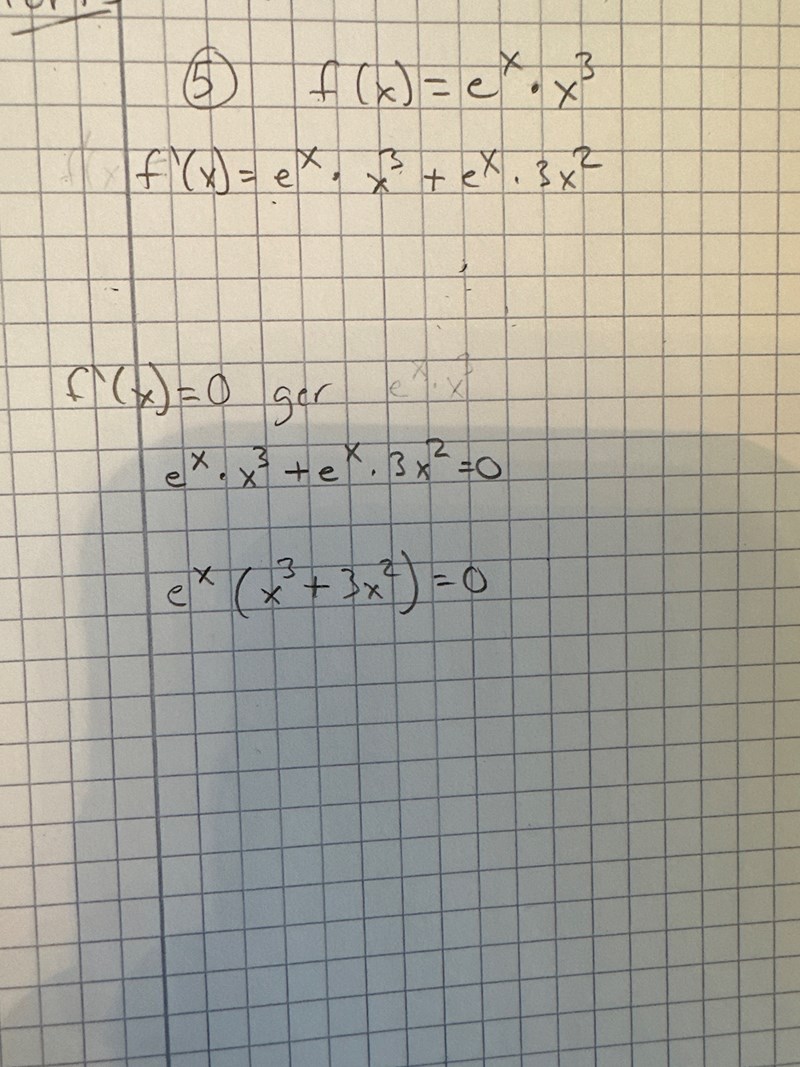 ⑤ f(x) = e^x · x^3
f'(x) = e^x · x^3 + e^x · 3x^2
f'(x) = 0 ger e^x · x^3
e^x · x^3 + e^x · 3x^2 = 0
e^x (x^3 + 3x^2) = 0